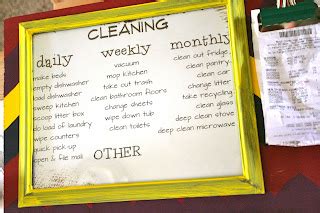 CLEANING
daily
make beds
empty dishwasher
load dishwasher
sweep kitchen
scoop litter box
do load of laundry
wipe counters
quick pick-up
open & file mail
weekly
vacuum
mop kitchen
take out trash
clean bathroom floors
change sheets
wipe down tub
clean toilets
monthly
clean out fridge,
clean pantry
clean car
change litter
take recycling
clean glass
deep clean stove
deep clean microwave
OTHER